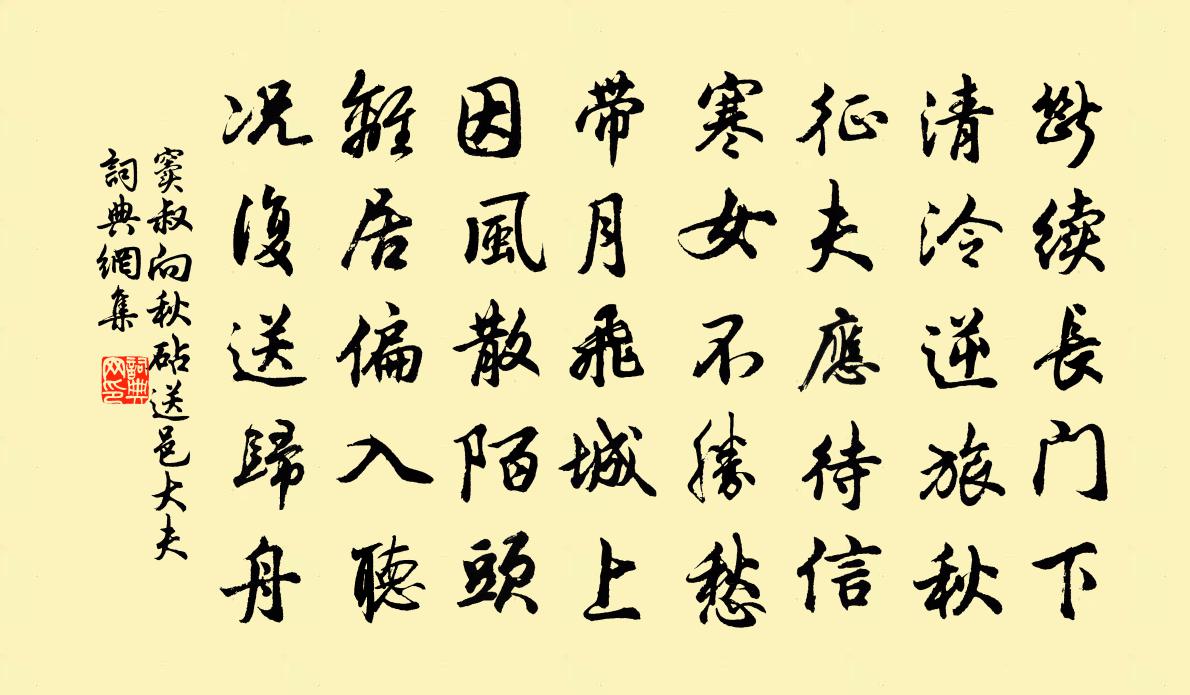 斷续長门下
清泠逆旅秋
征夫應待信
寒女不勝愁
带月飛城上
因風散陌頭
離居偏入聽
况復送歸舟
窦叔向秋砧送邑大夫
詞典網集
詞典
网印